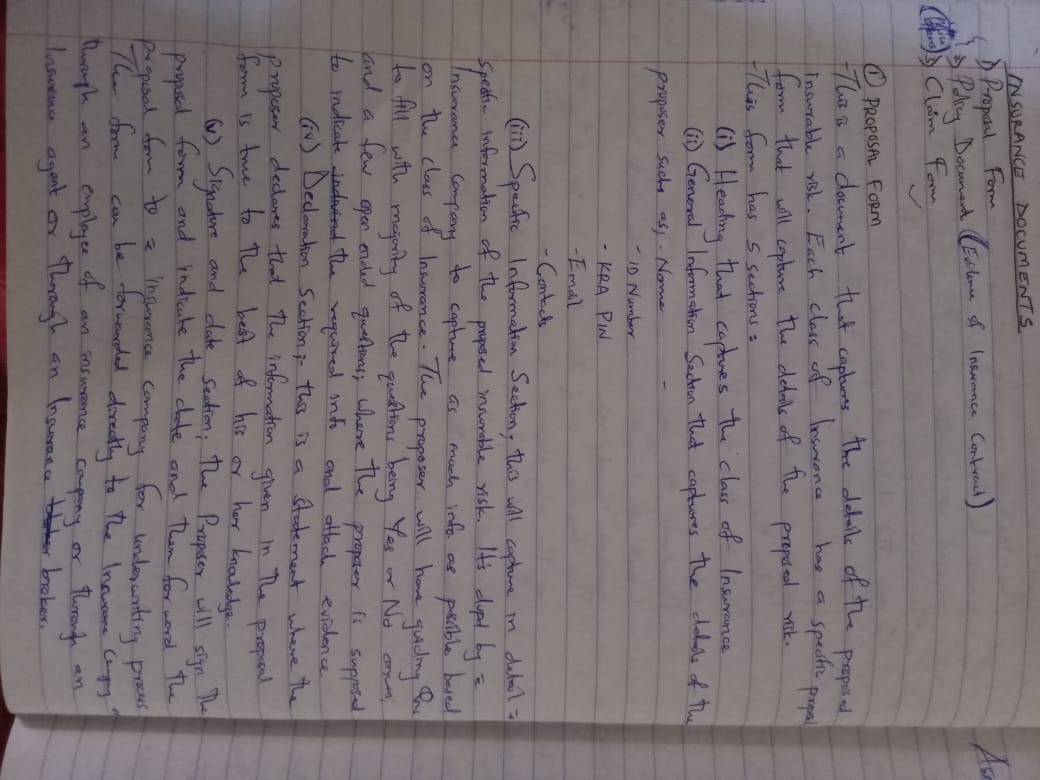 INSURANCE DOCUMENTS
1) Proposal Form
2) Policy Document (Evidence of Insurance Contract)
3) Claim Form
① PROPOSAL FORM
- This is a document that captures the details of the proposed
insurable risk. Each class of Insurance has a specific proposal
form that will capture the details of the proposed risk.
- This form has 5 sections =
(i) Heading that captures the class of Insurance
(ii) General Information Section that captures the details of the
proposer such as, - Name
- ID Number
- KRA PIN
- Email
- Contacts
(iii) Specific Information Section, this will capture in detail =
specific information of the proposed insurable risk. It's by =
Insurance Company to capture as much info as possible based
on the class of Insurance. The proposer will have guiding Qns
to fill with majority of the questions being Yes or No
and a few open ended questions, where the proposer is supposed
to indicate the required info and attach evidence
(iv) Declaration Section; this is a statement where the
proposer declares that the information given in the proposal
form is true to the best of his or her knowledge.
(v) Signature and date section; the Proposer will sign the
proposal form and indicate the date and then forward the
proposal form to = insurance company for underwriting process
The form can be forwarded directly to the Insurance Company or
through an employee of an insurance company or through an
Insurance agent or through an Insurance broker.